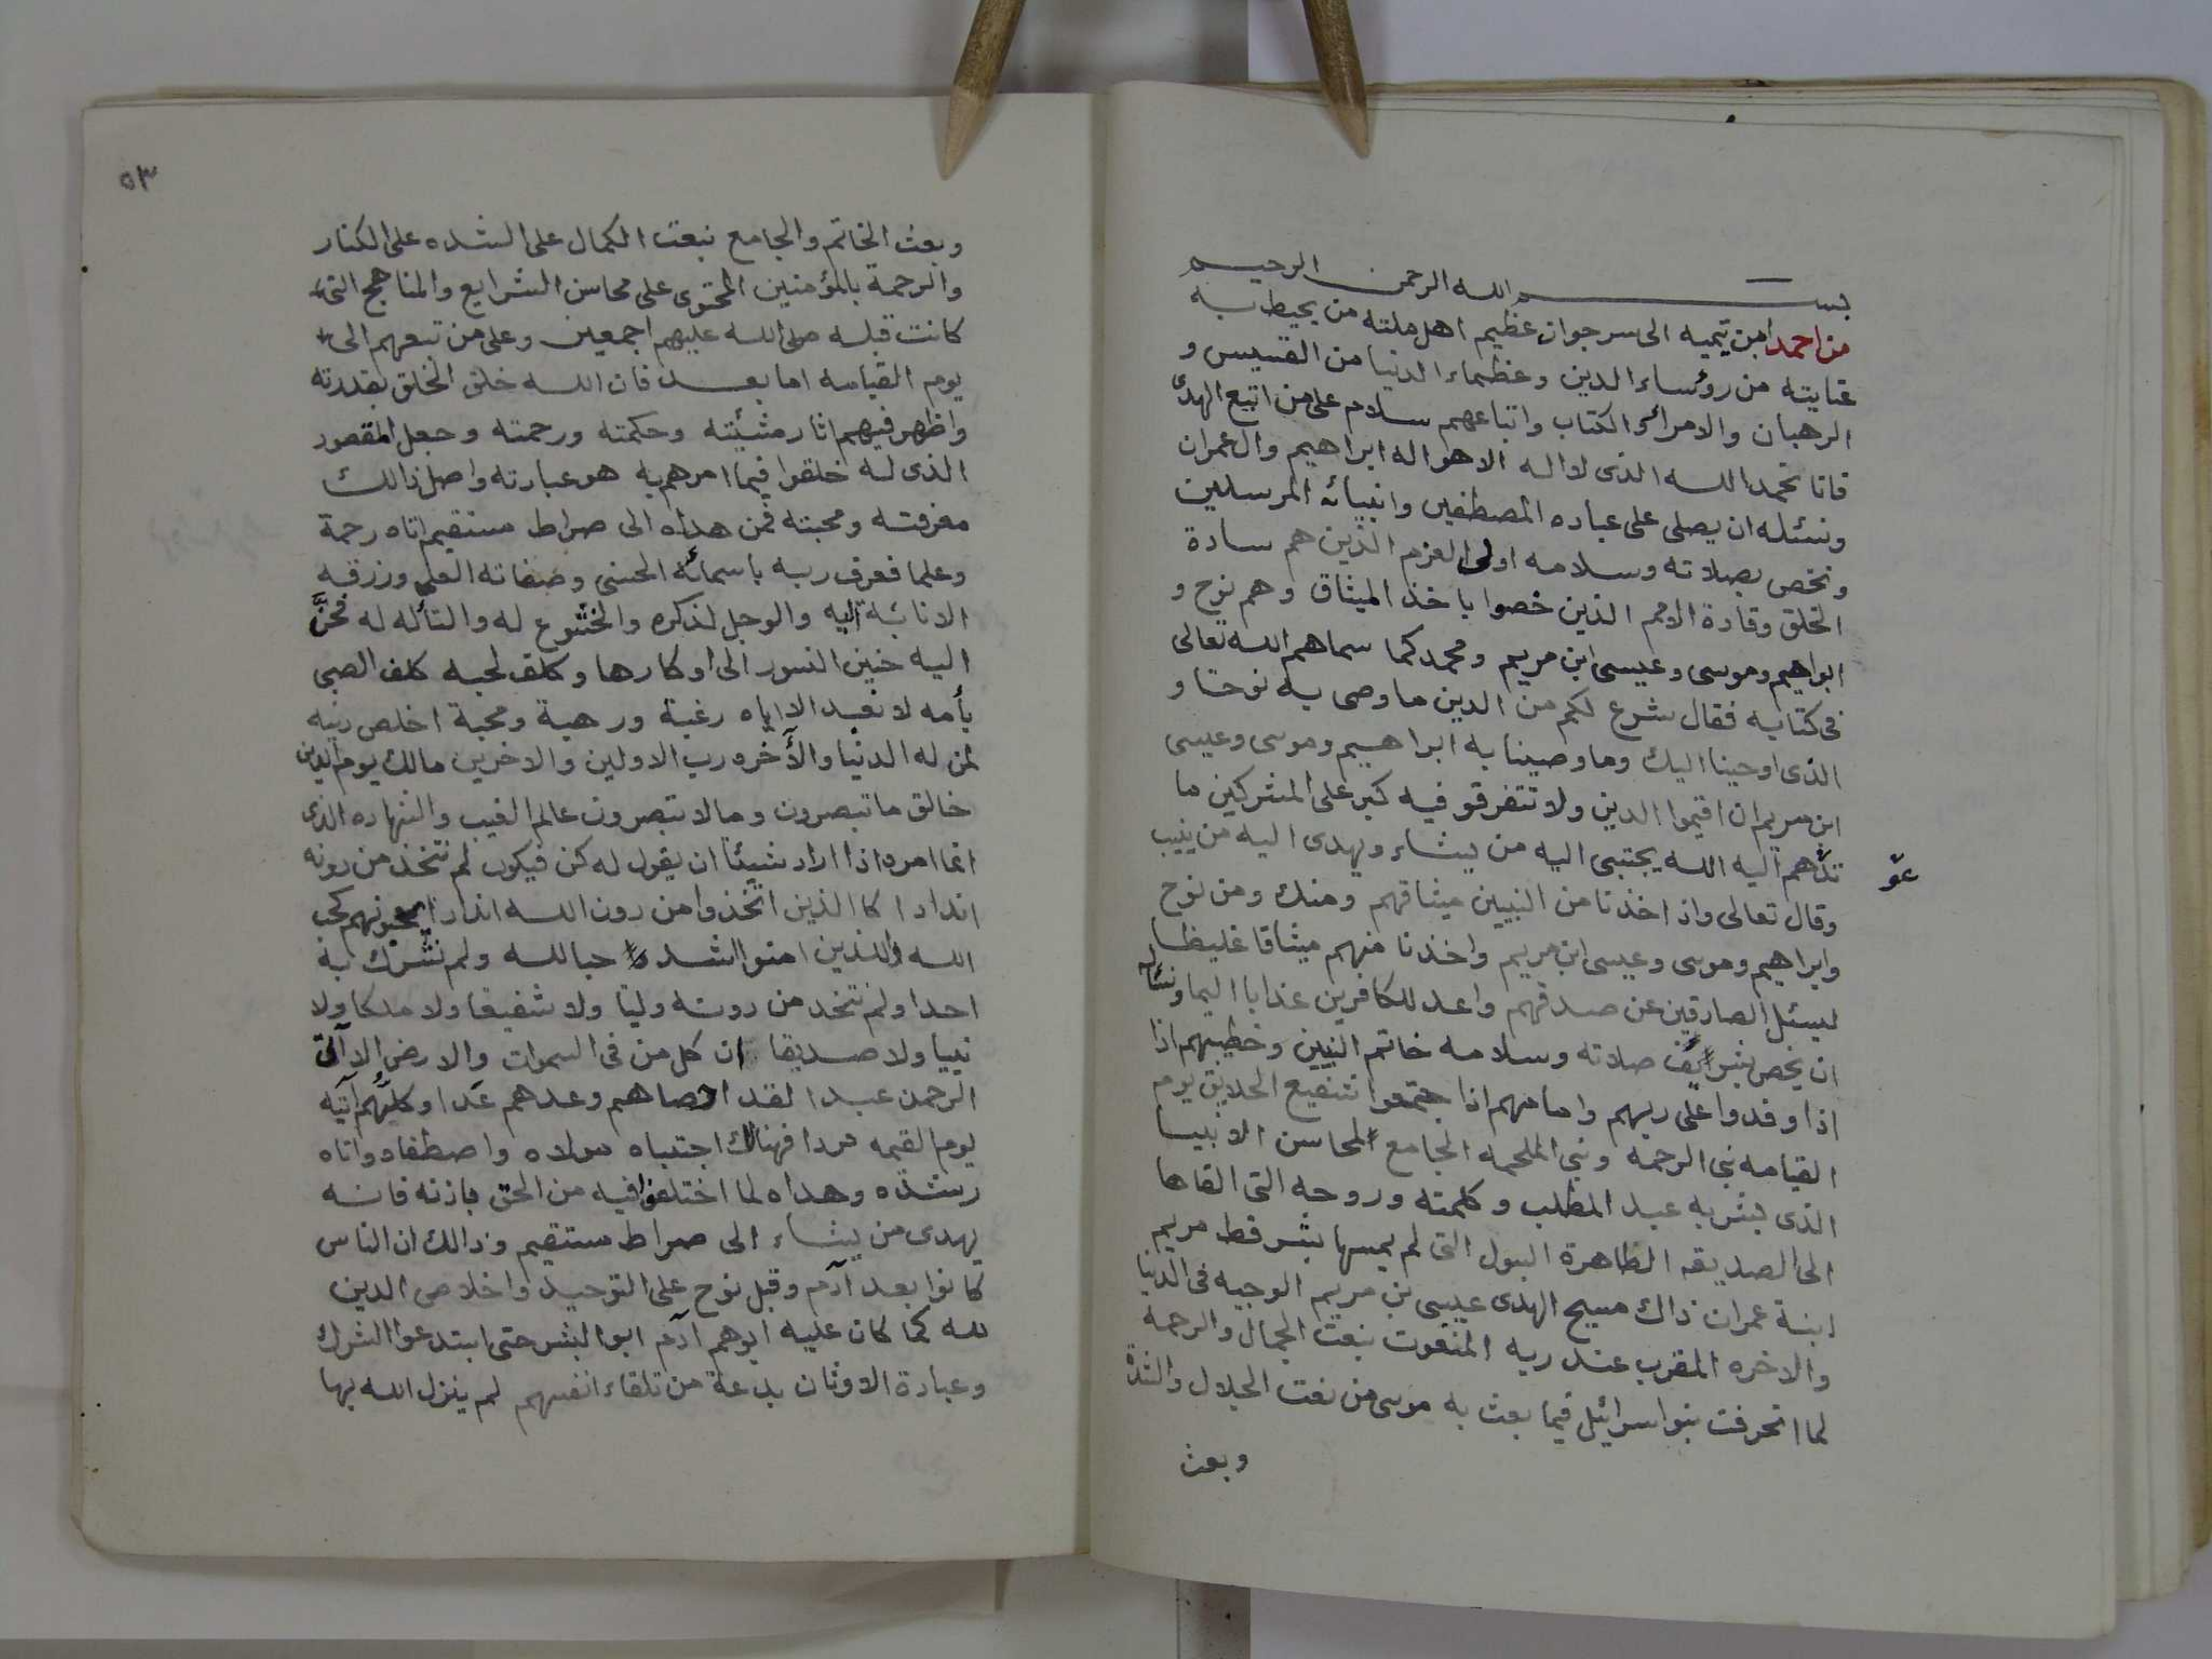 بسم الله الرحمن الرحيم
من احمد ابن تيميه الى سرجوان عظيم اهل ملته من يحيط به
عنايته من رؤساء الدين وعظماء الدنيا من القسيس و
الرهبان والامرائ والكتاب واتباعهم سلام على من اتبع الهدى
فانا نحمد الله الذى لا اله الا هو اله ابراهيم وال عمران
ونسئله ان يصلى على عباده المصطفين وانبيائه المرسلين
ونخص بصلاته وسلامه اولى العزم الذين هم سادة
الخلق وقادة الامم الذين خصوا باخذ الميثاق وهم نوح و
ابراهيم وموسى وعيسى ابن مريم ومحمد كما سماهم الله تعالى
فى كتابه فقال شرع لكم من الدين ما وصى به نوحا و
الذى اوحينا اليك وما وصينا به ابراهيم وموسى وعيسى
ابن مريم ان اقيموا الدين ولا تتفرقو فيه كبر على المشركين ما
تدهم اليه الله يجتبى اليه من يشاء ويهدى اليه من ينيب
عو
وقال تعالى واذ اخذنا من النبيين ميثاقهم ومنك ومن نوح
وابراهيم وموسى وعيسى ابن مريم واخذنا منهم ميثاقا غليظا
ليسئل الصادقين عن صدقهم واعد للكافرين عذابا اليما ونسئله
ان يخص بشرايف صلاته وسلامه خاتم النبيين وخطيبهم اذا
اذا وفدوا على ربهم وامامهم اذا جتمعوا شفيع الخلايق يوم
القيامه نبى الرحمه ونبى الملحمه الجامع لمحاسن الانبيا
الذى بشر به عبد المطلب وكلمته وروحه التى القاها
الى الصديقه الطاهرة البول التى لم يمسها بشر قط مريم
ابنة عمران ذاك مسيح الهدى عيسى بن مريم الوجيه فى الدنيا
والاخره المقرب عند ربه المنعوت بنعت الجمال والرحمه
لما انحرفت بنو اسرائيل فيما بعث به موسى من نعت الجلال والشدة
وبعث
٥٣
وبعث الخاتم والجامع بنعت الكمال على الشده على الكفار
والرحمة بالمؤمنين المحتوى على محاسن الشرايع والمناهج التى
كانت قبله صلى الله عليهم اجمعين وعلى من تبعهم الى
يوم القيامه اما بعد فان الله خلق الخلق بقدرته
واظهر فيهم اثار مشيئته وحكمته ورحمته وجعل المقصود
الذى له خلقوا فيما امرهم به هو عبادته واصل ذالك
معرفته ومحبته فمن هداه الى صراط مستقيم اتاه رحمة
وعلما فعرف ربه باسمائه الحسنى وصفاته العلى ورزقه
الانابة اليه والوجل لذكره والخشوع له والتأله له فحنّ
اليه حنين النسور الى اوكارها وكلف لحبه كلف الصبى
بأمه لا نعبد الا اياه رغبة ورهبة ومحبة اخلص دينه
لمن له الدنيا والآخره رب الاولين والاخرين مالك يوم الدين
خالق ما تبصرون وما لا تبصرون عالم الغيب والشهاده الذى
انما امره اذا اراد شيئا ان يقول له كن فيكون لم نتخذ من دونه
اندادا كا الذين اتخذوا من دون الله اندادا يحبونهم كحب
الله والذين امنوا اشد حبا لله ولم نشرك به
احدا ولم نتخد من دونه وليا ولا شفيعا ولا ملكا ولا
نبيا ولا صديقا ان كل من فى السموات والارض الا آتى
الرحمن عبدا لقد احصاهم وعدهم عدا وكلهم آتيه
يوم القيمه فردا فهنالك اجتباه مولاه واصطفاه واتاه
رشده وهداه لما اختلفوا فيه من الحق باذنه فانه
يهدى من يشاء الى صراط مستقيم وذالك ان الناس
كانوا بعد آدم وقبل نوح على التوحيد واخلاص الدين
لله كما كان عليه ابوهم آدم ابو البشر حتى ابتدعوا الشرك
وعبادة الاوثان بدعة من تلقاء انفسهم لم ينزل الله بها